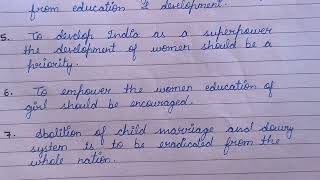 from education & development.
5. To develop India as a superpower
the development of women should be a
priority.
6. To empower the women education of
girl should be encouraged.
7. Abolition of child marriage and dowry
system is to be eradicated from the
whole nation.